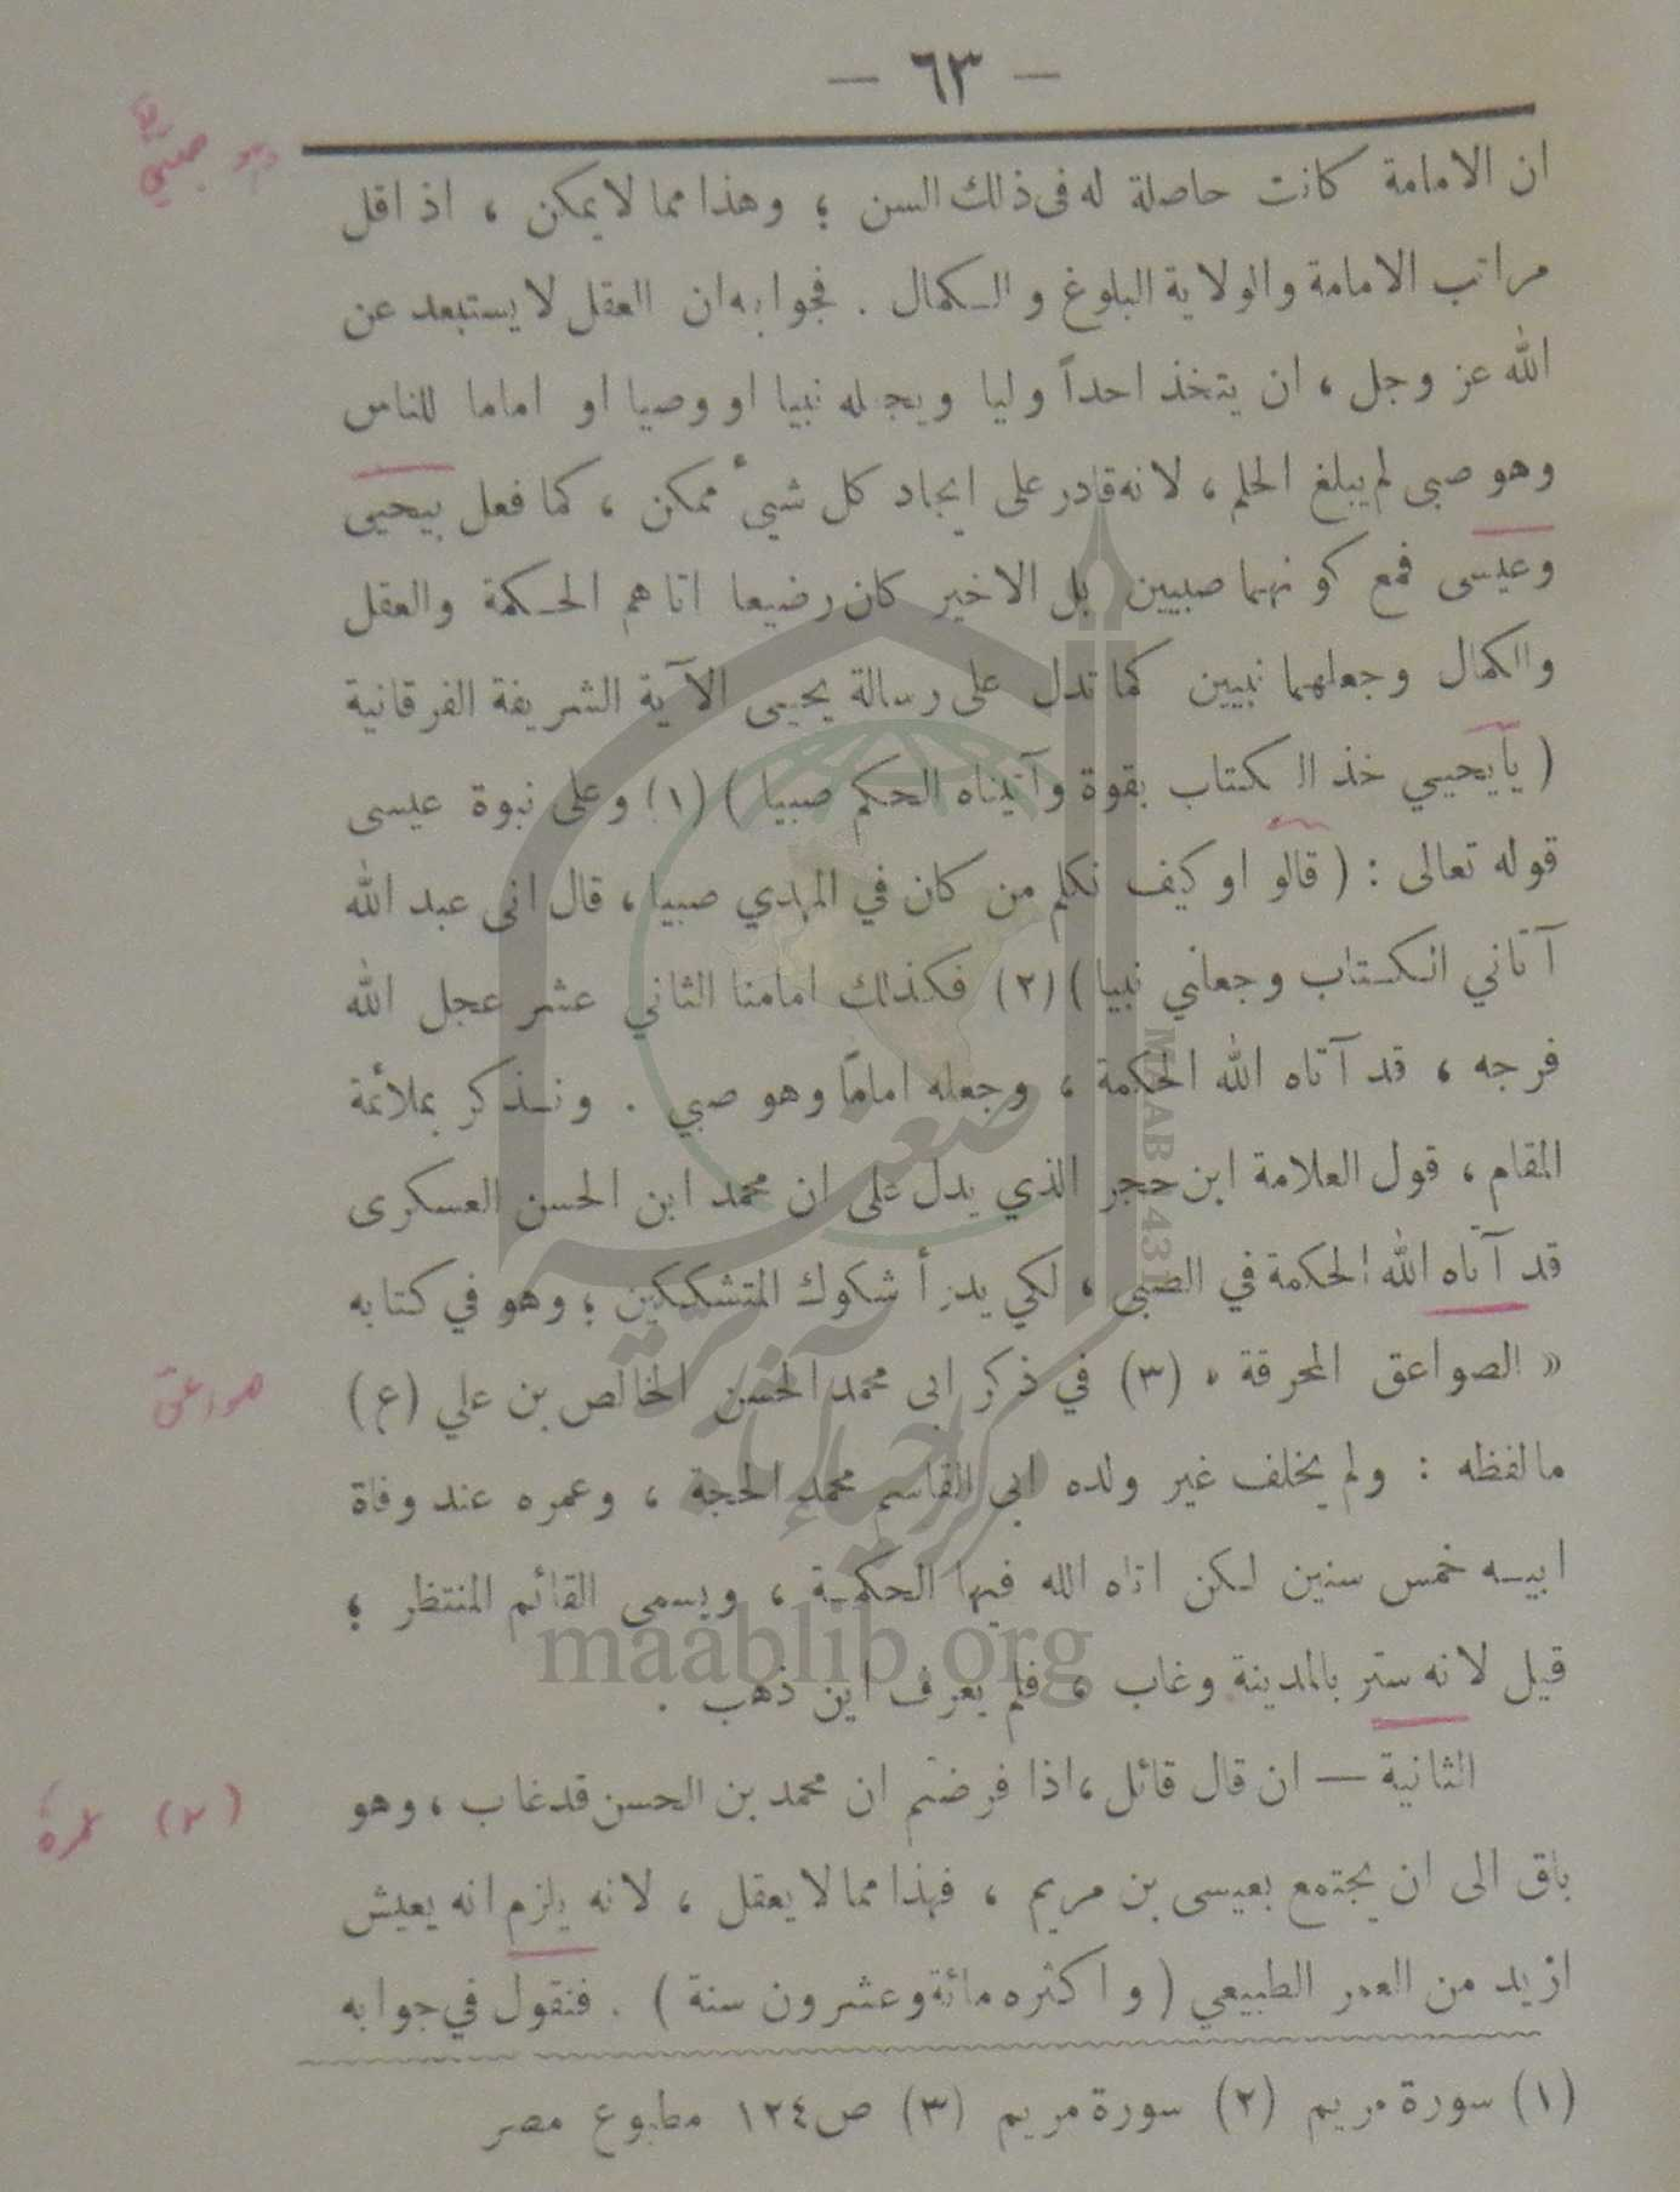 — ٦٣ —
ان الامامة كانت حاصلة له فى ذلك السن ؛ وهذا مما لا يمكن ، اذ اقل
مراتب الامامة والولاية البلوغ والكمال . فجوابه ان العقل لا يستبعد عن
الله عز وجل ، ان يتخذ احداً وليا ويجعله نبيا او وصيا او اماما للناس
وهو صبى لم يبلغ الحلم ، لانه قادر على ايجاد كل شيء ممكن ، كما فعل بيحيى
وعيسى فمع كونهما صبيين بل الاخير كان رضيعا اتاهم الحكمة والعقل
والكمال وجعلهما نبيين كما تدل على رسالة يحيى الآية الشريفة الفرقانية
( يايحيي خذ الكتاب بقوة وآتيناه الحكم صبيا ) (١) وعلى نبوة عيسى
قوله تعالى : ( قالو او كيف نكلم من كان في المهدي صبيا ، قال انى عبد الله
آتاني الكتاب وجعلني نبيا ) (٢) فكذلك امامنا الثاني عشر عجل الله
فرجه ، قد آتاه الله الحكمة ، وجعله اماماً وهو صبي . ونذكر بملائمة
المقام ، قول العلامة ابن حجر الذي يدل على ان محمد ابن الحسن العسكرى
قد آتاه الله الحكمة في الصبى ، لكي يدرأ شكوك المتشككين ؛ وهو في كتابه
« الصواعق المحرقة » (٣) في ذكر ابى محمد الحسن الخالص بن علي (ع)
مالفظه : ولم يخلف غير ولده ابي القاسم محمد الحجة ، وعمره عند وفاة
ابيه خمس سنين لكن اتاه الله فيها الحكمة ، ويسمى القائم المنتظر ؛
قيل لانه ستر بالمدينة وغاب ، فلم يعرف اين ذهب .
الثانية — ان قال قائل ، اذا فرضتم ان محمد بن الحسن قد غاب ، وهو
باق الى ان يجتمع بعيسى بن مريم ، فهذا مما لا يعقل ، لانه يلزم انه يعيش
ازيد من العمر الطبيعي ( واكثره مائة وعشرون سنة ) . فنقول في جوابه
(١) سورة مريم (٢) سورة مريم (٣) ص ١٢٤ مطبوع مصر
صواعق
(٢)
maablib.org
MAAB 1431